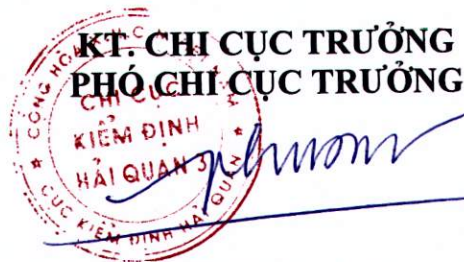 KT. CHI CỤC TRƯỞNG
PHÓ CHI CỤC TRƯỞNG
CHI CỤC
KIỂM ĐỊNH
HẢI QUAN 3
CỤC KIỂM ĐỊNH HẢI QUAN
CỘNG HÒA